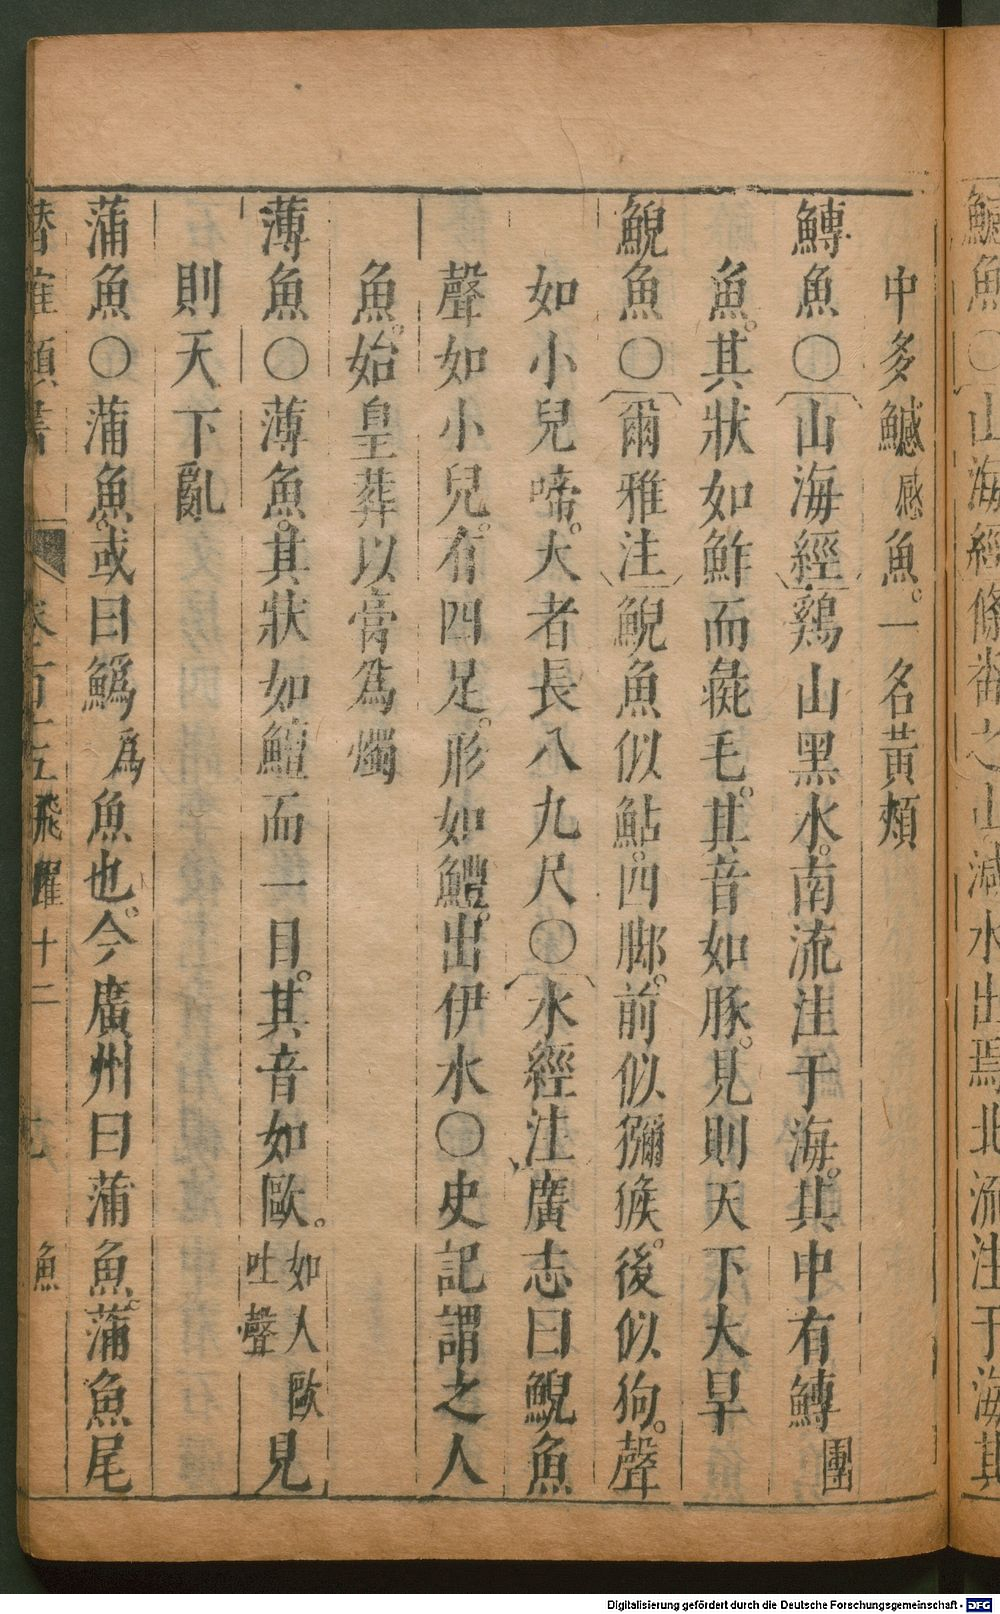 鱄魚○山海經條
番之山減水出焉北流注于海其
中多鱤感魚。一名黃頰
鱄魚○山海經雞山黑水。南流注于海。其中有鱄團
魚。其狀如鮓而彘毛。其音如豚。見則天下大旱
鯢魚○爾雅注鯢魚似鮎。四脚。前似獼猴。後似狗。聲
如小兒啼。大者長八九尺○水經注廣志曰鯢魚
聲如小兒。有四足。形如鱧。出伊水○史記謂之人
魚。始皇葬以膏為燭
薄魚○薄魚。其狀如鱣而一目。其音如歐。如人歐吐聲見
則天下亂
蒲魚○蒲魚。或曰鰞為魚也。今廣州曰蒲魚。蒲魚尾
潛確類書
卷一百十五飛躍十二
魚
Digitalisierung gefördert durch die Deutsche Forschungsgemeinschaft - DFG